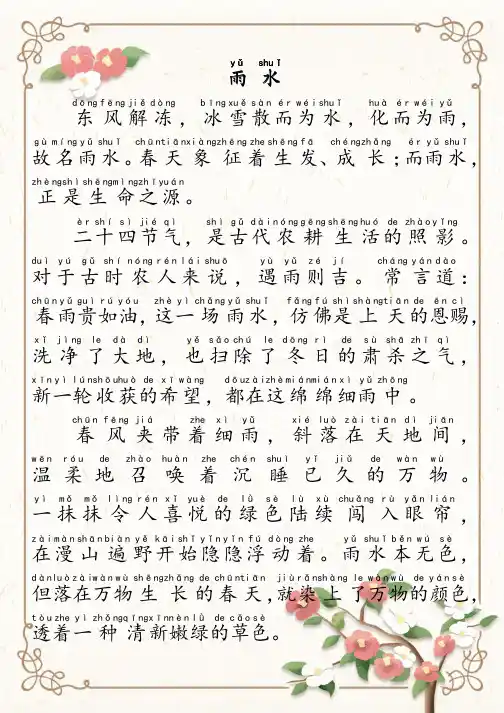 yǔ shuǐ
雨水
dōng fēng jiě dòng bīng xuě sàn ér wéi shuǐ huà ér wéi yǔ
东风解冻，冰雪散而为水，化而为雨，
gù míng yǔ shuǐ chūn tiān xiàng zhēng zhe shēng fā chéng zhǎng ér yǔ shuǐ
故名雨水。春天象征着生发、成长；而雨水，
zhèng shì shēng mìng zhī yuán
正是生命之源。
èr shí sì jié qì shì gǔ dài nóng gēng shēng huó de zhào yǐng
二十四节气，是古代农耕生活的照影。
duì yú gǔ shí nóng rén lái shuō yù yǔ zé jí cháng yán dào
对于古时农人来说，遇雨则吉。常言道：
chūn yǔ guì rú yóu zhè yì chǎng yǔ shuǐ fǎng fú shì shàng tiān de ēn cì
春雨贵如油，这一场雨水，仿佛是上天的恩赐，
xǐ jìng le dà dì yě sǎo chú le dōng rì de sù shā zhī qì
洗净了大地，也扫除了冬日的肃杀之气，
xīn yì lún shōu huò de xī wàng dōu zài zhè mián mián xì yǔ zhōng
新一轮收获的希望，都在这绵绵细雨中。
chūn fēng jiá zhe xì yǔ xié luò zài tiān dì jiān
春风夹带着细雨，斜落在天地间，
wēn róu de zhào huàn zhe chén shuì yǐ jiǔ de wàn wù
温柔地召唤着沉睡已久的万物。
yì mǒ mǒ lìng rén xǐ yuè de lǜ sè lù xù chuǎng rù yǎn lián
一抹抹令人喜悦的绿色陆续闯入眼帘，
zài màn shān biàn yě kāi shǐ yǐn yǐn fú dòng zhe yǔ shuǐ běn wú sè
在漫山遍野开始隐隐浮动着。雨水本无色，
dàn luò zài wàn wù shēng zhǎng de chūn tiān jiù rǎn shàng le wàn wù de yán sè
但落在万物生长的春天，就染上了万物的颜色，
tòu zhe yì zhǒng qīng xīn nèn lǜ de cǎo sè
透着一种清新嫩绿的草色。